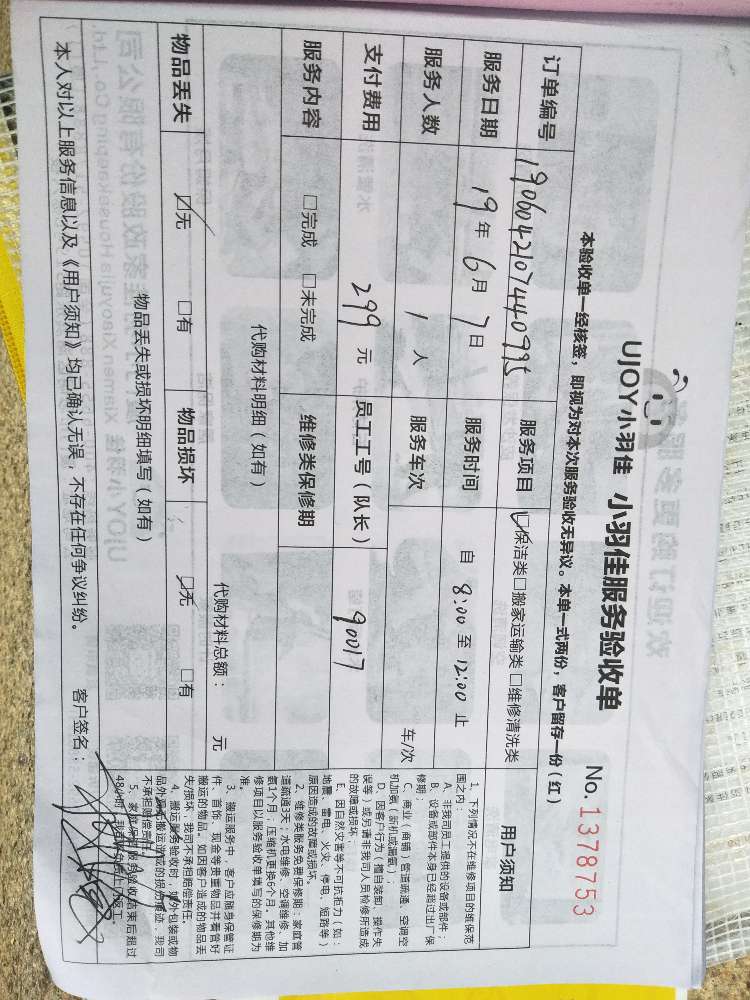 UJOY小羽佳 小羽佳服务验收单
No. 1378753
本验收单一经核签，即视为对本次服务验收无异议。本单一式两份，客户留存一份（红）
订单编号 1906042107440995 服务项目 ☑保洁类□搬家运输类□维修清洗类
服务日期 19年6月7日 服务时间 自 8:00 至 12:00 止
服务人数 1 人 服务车次 车/次
支付费用 299 元 员工工号（队长） 90017
服务内容 □完成 □未完成 维修类保修期
代购材料明细（如有）
代购材料总额： 元
物品丢失 ☑无 □有 物品损坏 ☑无 □有
物品丢失或损坏明细填写（如有）
本人对以上服务信息以及《用户须知》均已确认无误，不存在任何争议纠纷。 客户签名：
用户须知
1、下列情况不在维修项目的维保范
围之内：
A、非我司员工提供的设备或部件；
B、设备或部件本身已经超过出厂保
修期；
C、商业（商铺）管道疏通、空调空
机加氨（新机或漏氨）；
D、因客户行为（擅自装卸、操作失
误等）或另请非我司人员检修所造成
的故障或损坏；
E、因自然灾害等不可抗拒力（如：
地震、雷电、火灾、停电、短路等）
原因造成的故障或损坏。
2、维修类服务免费保修期：家庭管
道疏通3天；水电维修、空调维修、加
氨1个月；压缩机更换6个月。其他维
修项目以服务验收单填写的保修期为
准。
3、搬运服务中，客户应随身保管证
件、首饰、现金等贵重物品并看管好
搬运的物品。如因客户造成的物品丢
失/损坏，我司不承担赔偿责任。
4、搬运服务验收时，除外包装或物
品外观无搬运造成的损伤痕迹，我司
不承担赔偿责任。
5、家庭保洁服务验收结束后超过
48小时，我司不免费上门返工。